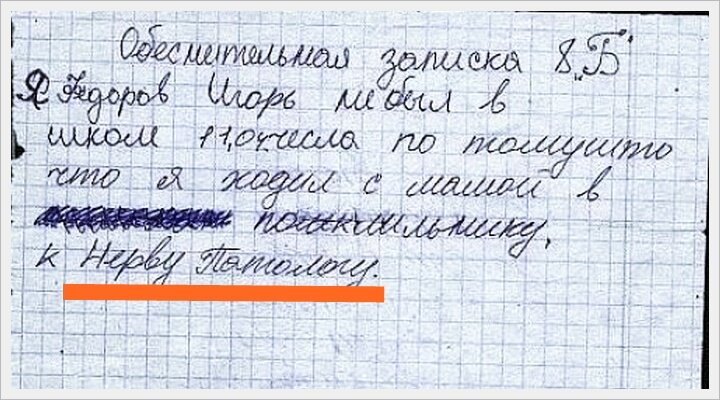 Обеснительная записка 8 „Б"
Я Фёдоров Игорь небыл в
школе 11,04числа по томушто
что я ходил с мамой в
к Нерву Патологу.